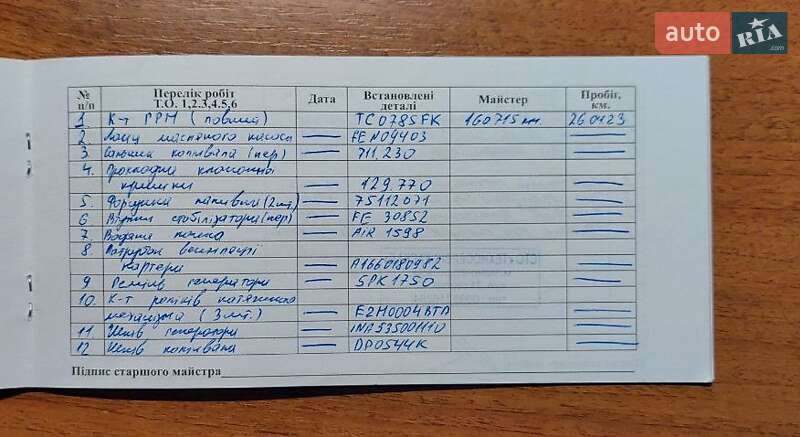 auto RIA .com
№ п/п Перелік робіт Т.О. 1,2,3,4,5,6 Дата Встановлені деталі Майстер Пробіг, км.
1. К-т ГРМ (повний) TC0785FK 160715 км 260423
2 Ланц масляного насоса — FE NO9403 —
3. Сальник колінвала (пер) — 711.230 —
4. Прокладка клапанної
кришки — 129.770 —
5. Форсунки паливні (2шт) — 75112071 —
6 Втулки стабілізатора (пер) — FE 30852 —
7 Водяна помпа — AIR 1598 —
8. Патрубок вентиляції
картера — A1660180982 —
9 Ремінь генератора — 5PK1750 —
10. К-т роликів натяжного
механізма (3шт.) — E2H0004BTA —
11 Шків генератора — INA535001110 —
12 Шків колінвала — DP0544K —
Підпис старшого майстра